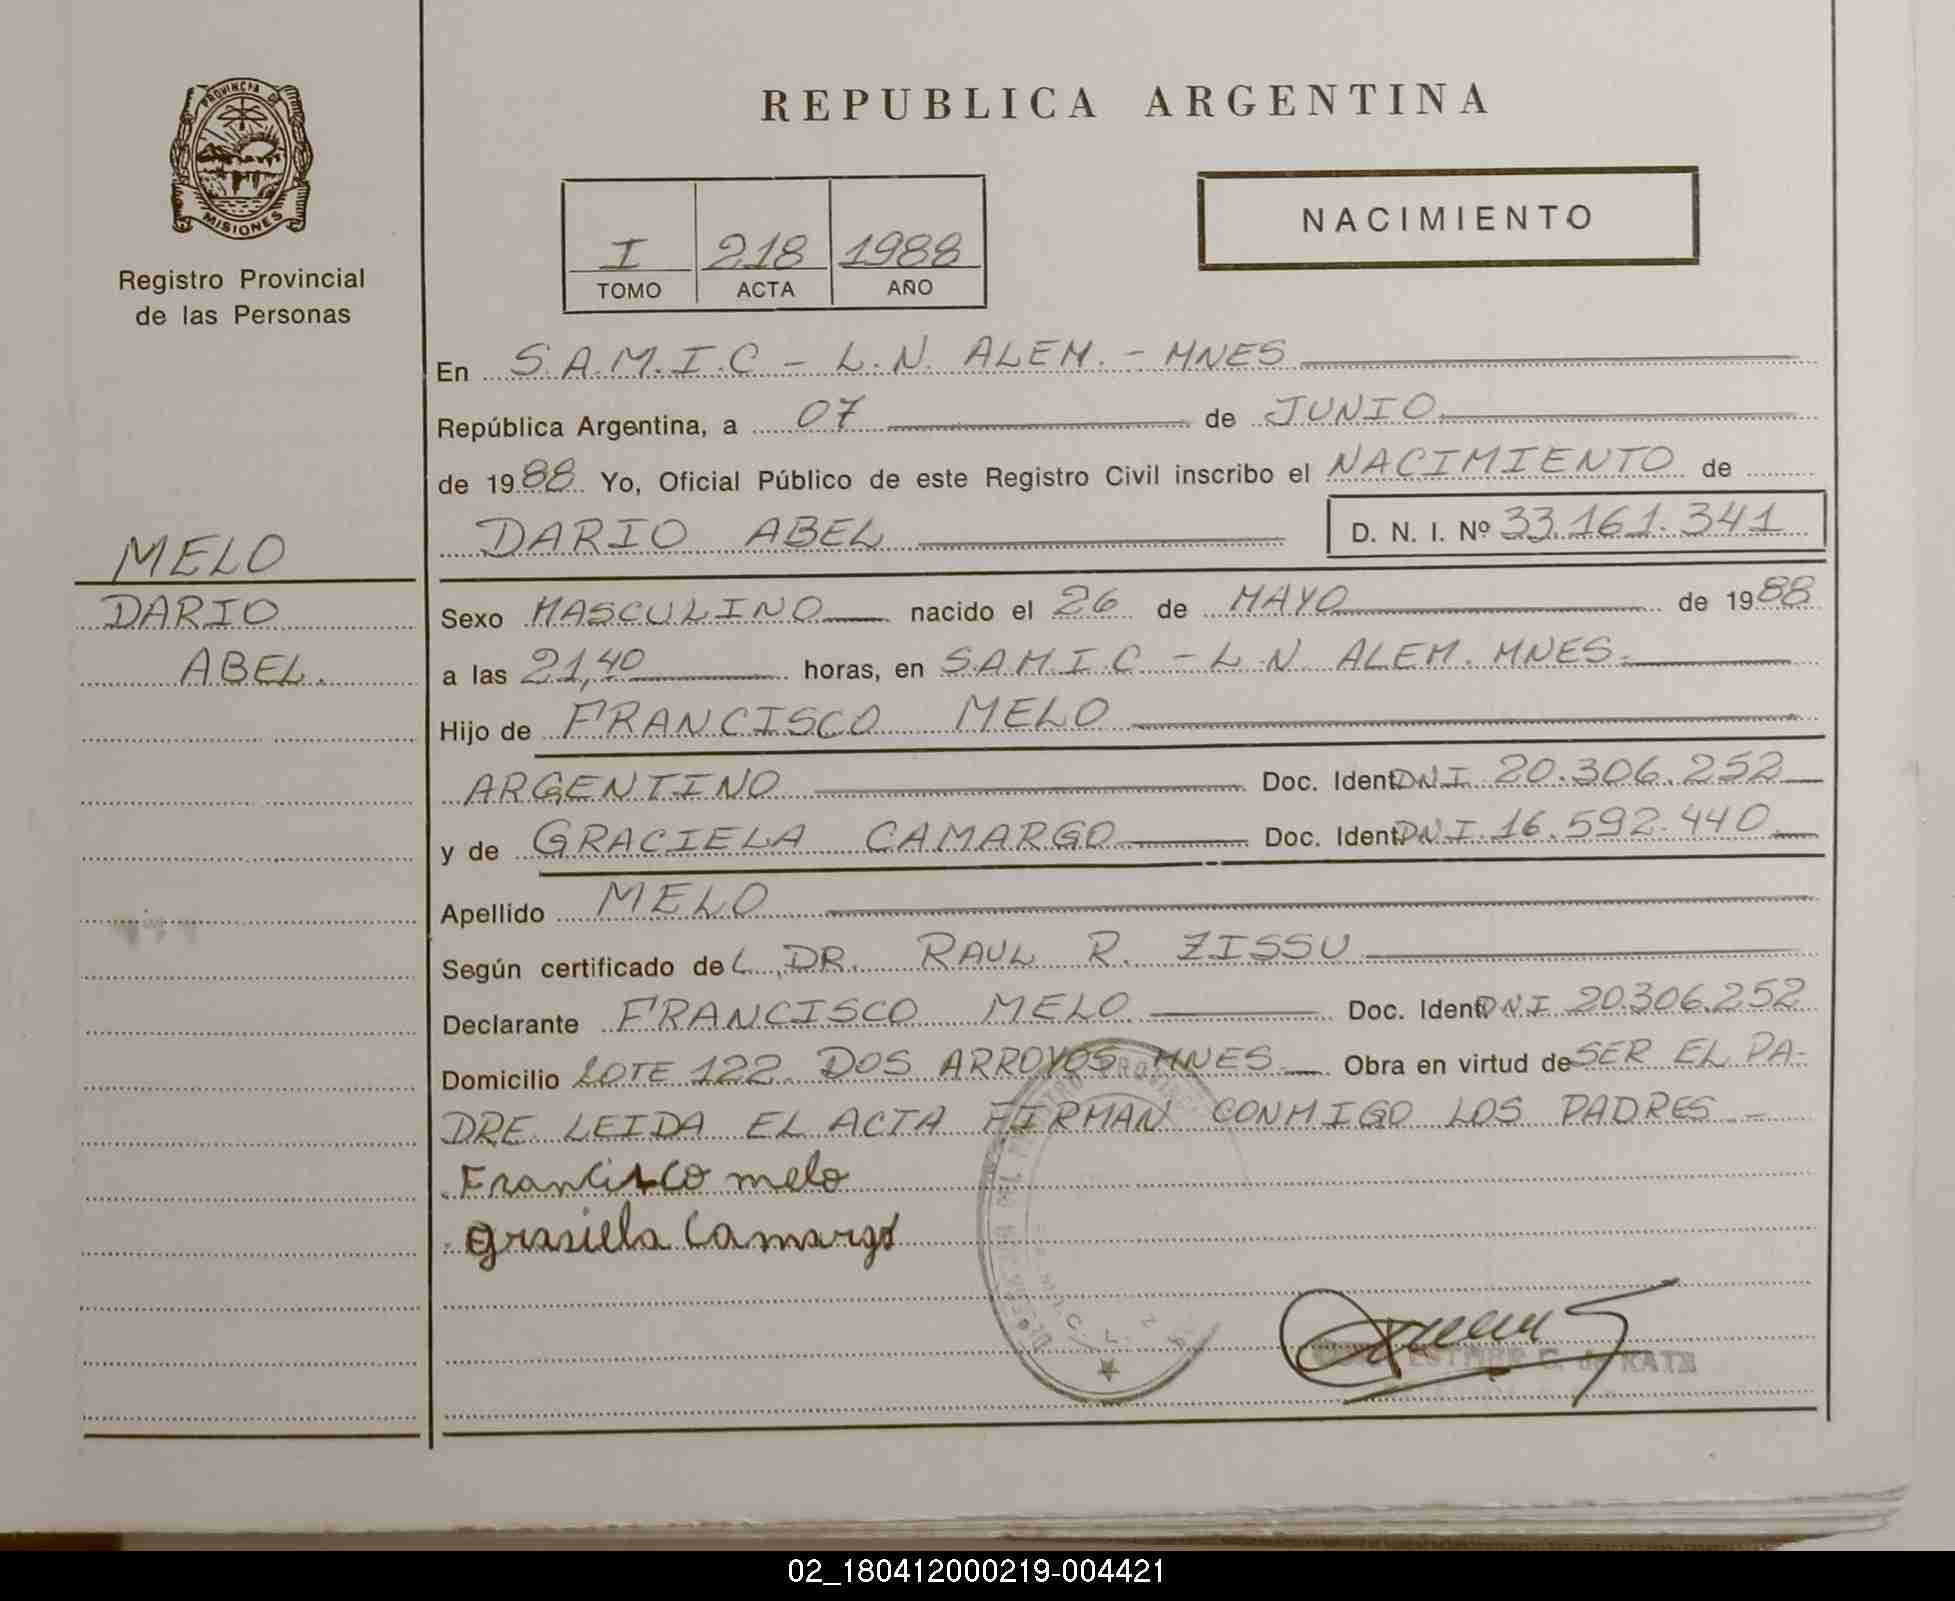 REPUBLICA ARGENTINA
PROVINCIA DE
MISIONES
Registro Provincial
de las Personas
I 218 1988
TOMO ACTA AÑO
NACIMIENTO
En S.A.M.I.C - L.N. ALEM. - MNES
República Argentina, a 07 de JUNIO
de 1988 Yo, Oficial Público de este Registro Civil inscribo el NACIMIENTO de
DARIO ABEL D. N. I. Nº 33.161.341
MELO
DARIO
ABEL.
Sexo MASCULINO nacido el 26 de MAYO de 1988
a las 21,40 horas, en S.A.M.I.C - L.N ALEM. MNES.
Hijo de FRANCISCO MELO
ARGENTINO Doc. Ident. DNI 20.306.252
y de GRACIELA CAMARGO Doc. Ident. DNI. 16.592.440
Apellido MELO
Según certificado de L DR. RAUL R. ZISSU
Declarante FRANCISCO MELO Doc. Ident. DNI 20.306.252
Domicilio LOTE 122 DOS ARROYOS MNES Obra en virtud de SER EL PA-
DRE LEIDA EL ACTA FIRMAN CONMIGO LOS PADRES -
Francisco melo
Grasiela Camargo
ESTHER C. de KATZ
02_180412000219-004421